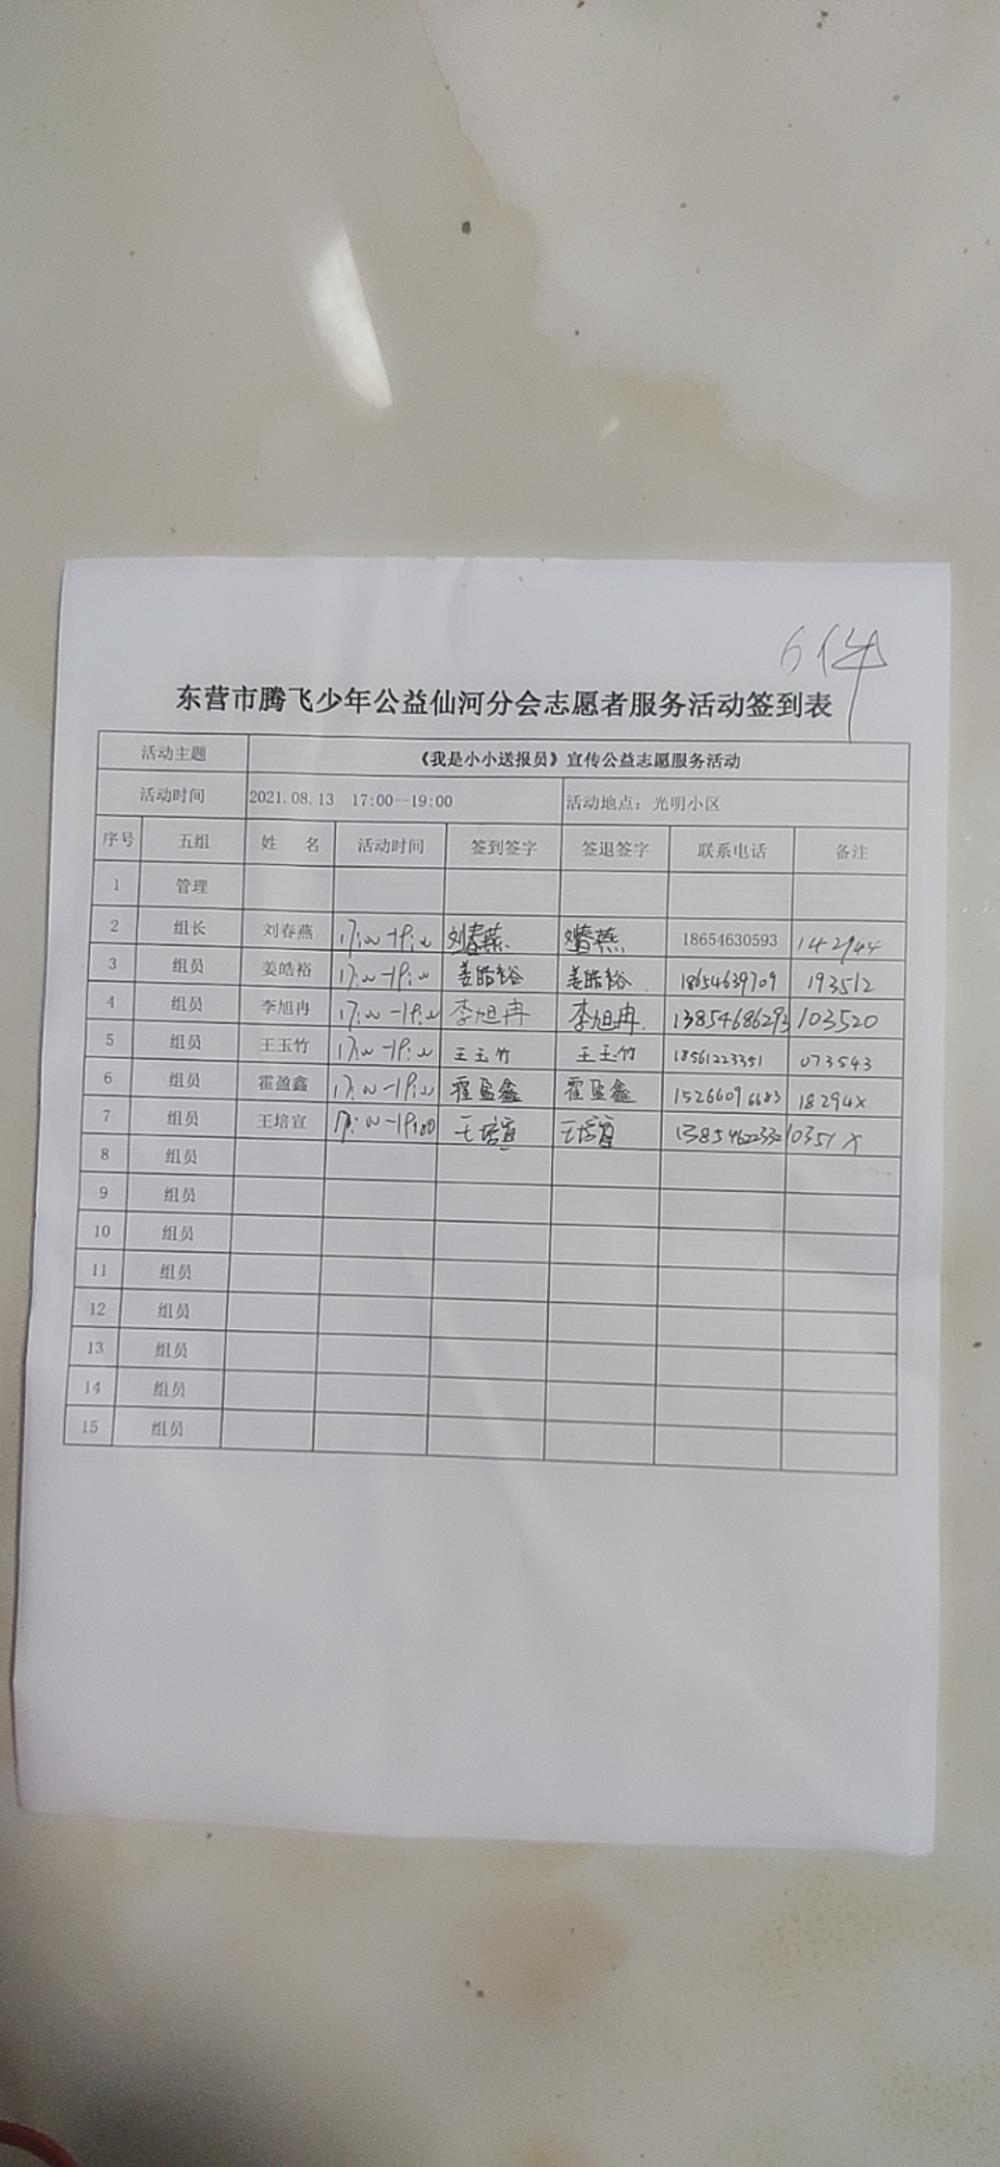 6件
东营市腾飞少年公益仙河分会志愿者服务活动签到表
活动主题 《我是小小送报员》宣传公益志愿服务活动
活动时间 2021.08.13 17:00—19:00 活动地点：光明小区
序号 五组 姓 名 活动时间 签到签字 签退签字 联系电话 备注
1 管理
2 组长 刘春燕 17:00-19:00 刘春燕 刘春燕 18654630593 142944
3 组员 姜皓裕 17:00-19:00 姜皓裕 姜皓裕 18654639709 193512
4 组员 李旭冉 17:00-19:00 李旭冉 李旭冉 13854686293 103520
5 组员 王玉竹 17:00-19:00 王玉竹 王玉竹 18561223351 073543
6 组员 霍盈鑫 17:00-19:00 霍盈鑫 霍盈鑫 15266096683 18294X
7 组员 王培宣 17:00-19:00 王培宣 王培宣 13854622332 10351X
8 组员
9 组员
10 组员
11 组员
12 组员
13 组员
14 组员
15 组员